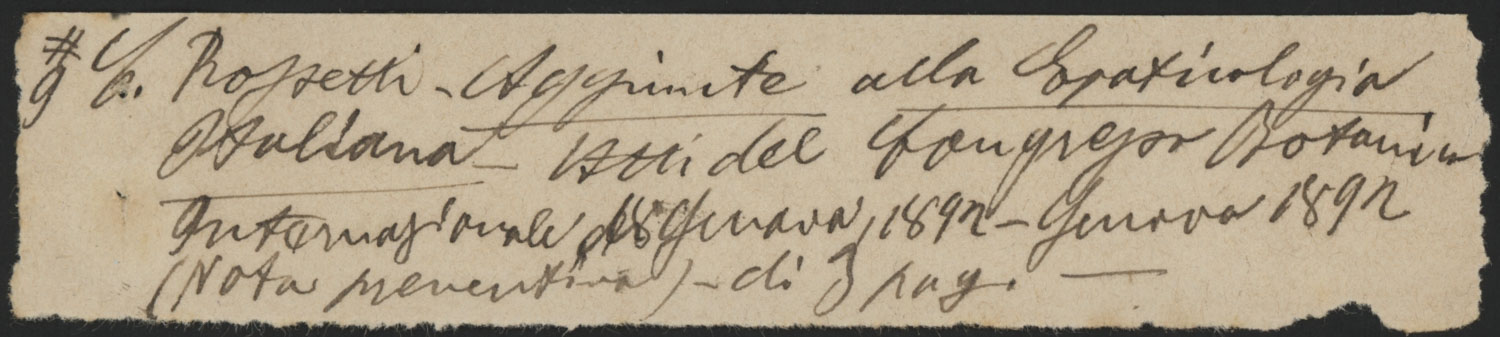 # 9 C. Rossetti - Aggiunte alla Epaticologia
Italiana - Atti del Congresso Botanico
Internazionale di Genova, 1892 - Genova 1892
(Nota preventiva) - di 3 pag. —